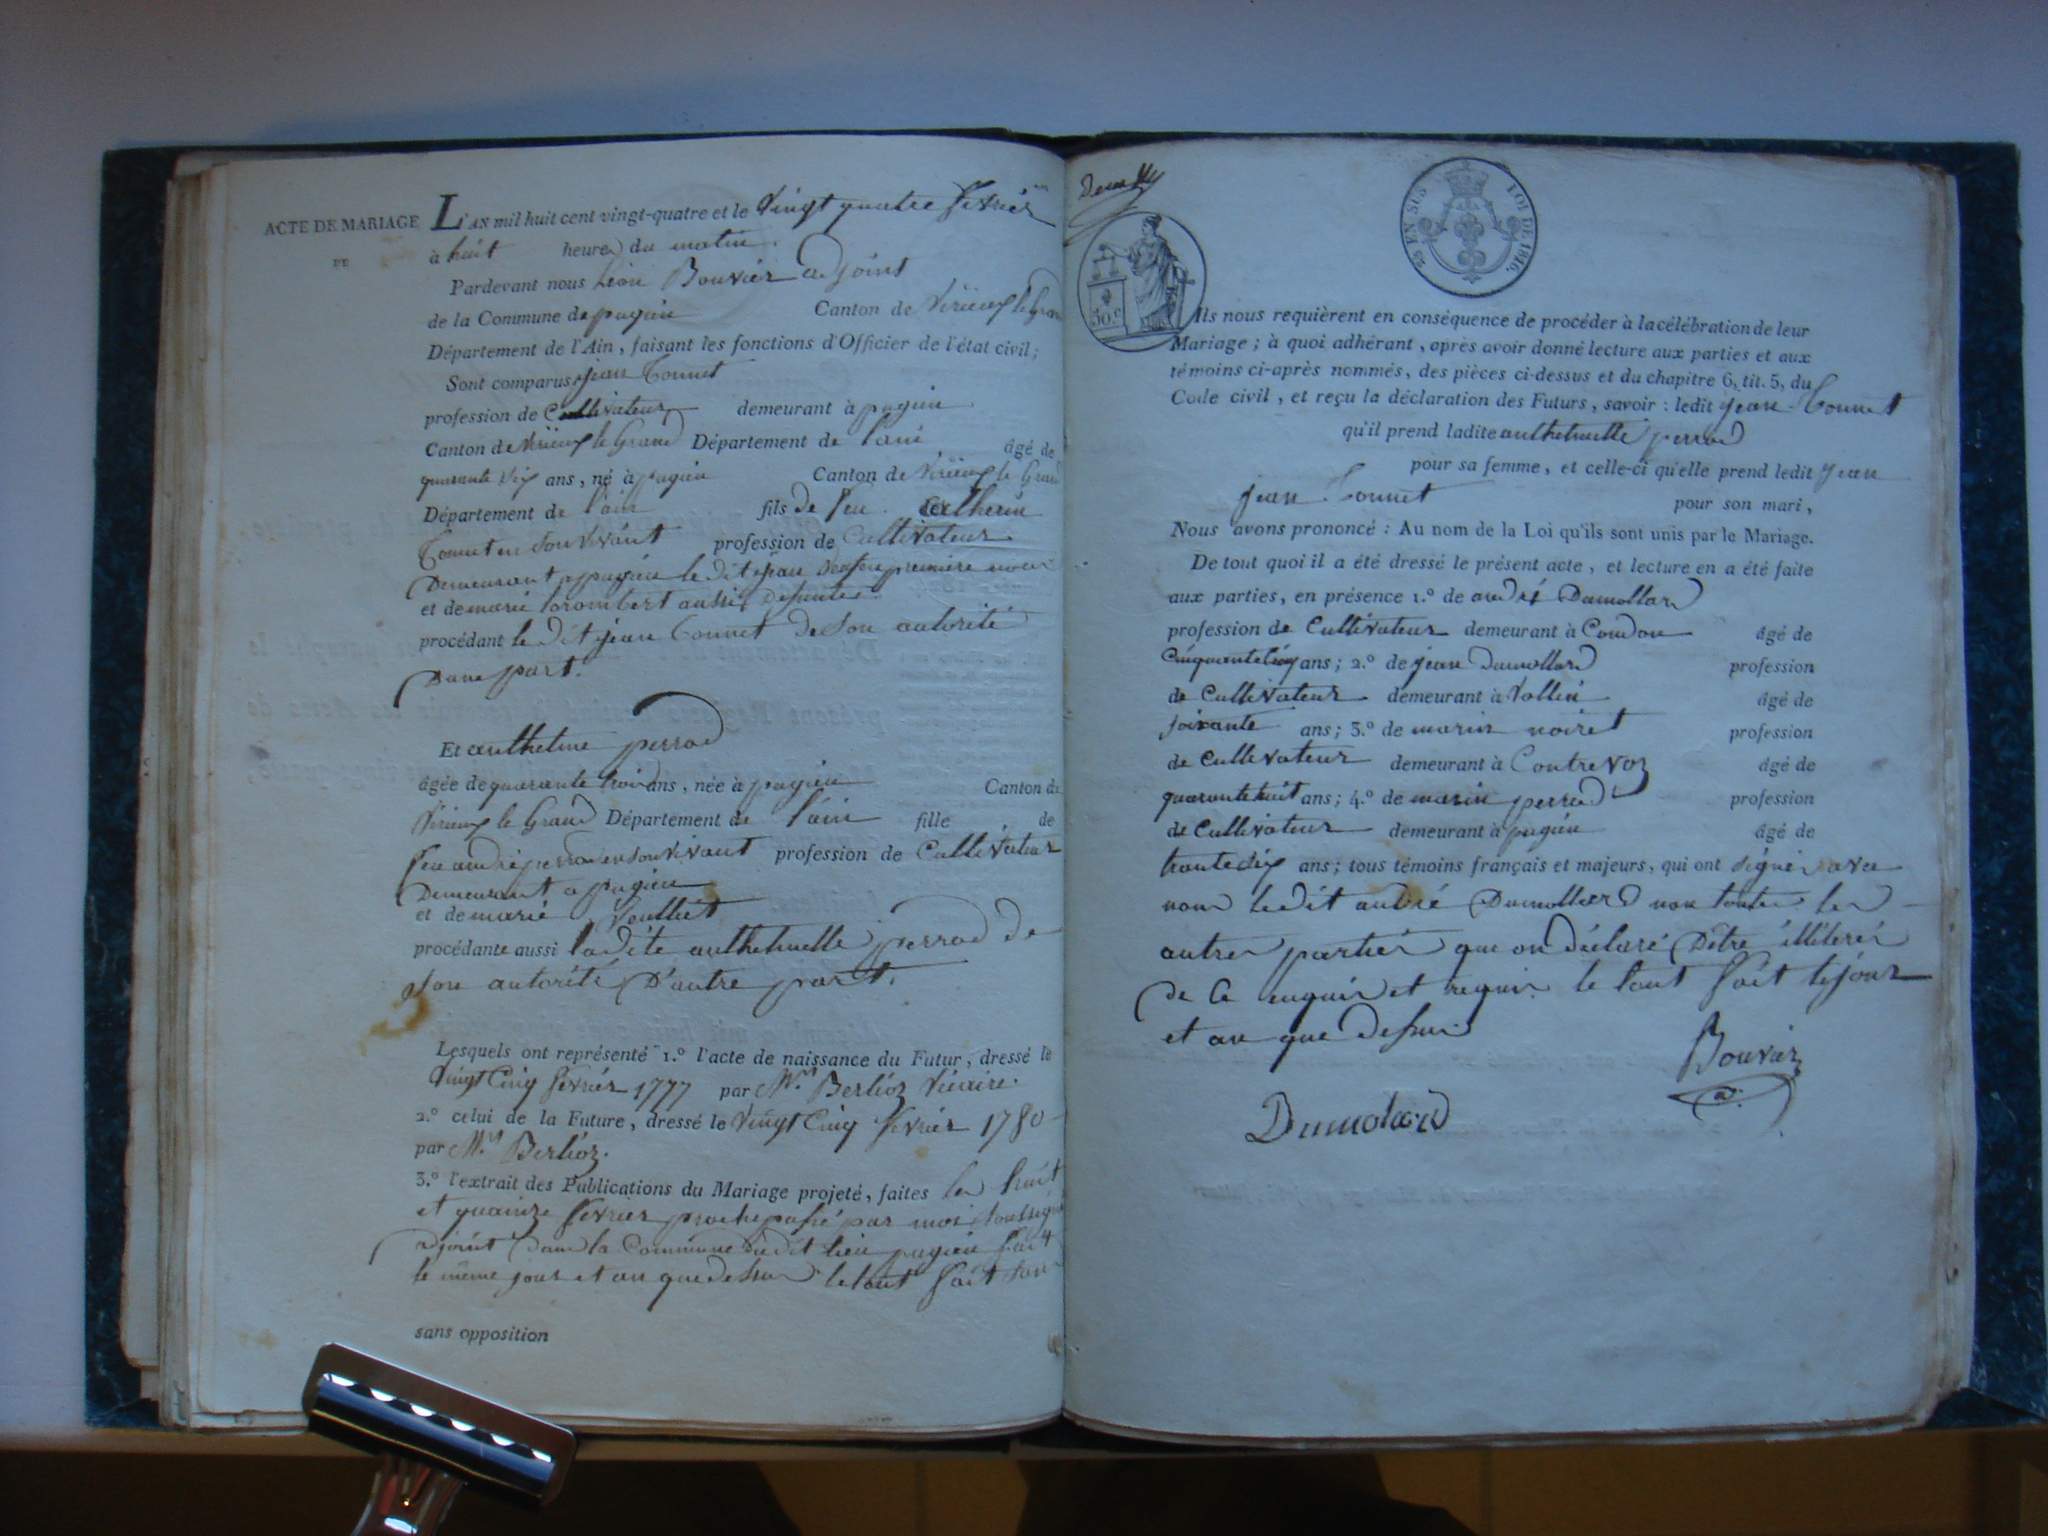 ACTE DE MARIAGE
DE
L'AN mil huit cent vingt-quatre et le vingt quatre fevrier
à huit heures du matin.
Pardevant nous Léon Bouvier adjoint
de la Commune de pugieu Canton de Virieux le Grand
Département de l'Ain, faisant les fonctions d'Officier de l'état civil;
Sont comparus jean Connet
profession de Cultivateur demeurant à pugieu
Canton de Virieux le Grand Département de l'ain âgé de
quarante Six ans, né à pugieu Canton de Virieux le Grand
Département de l'ain fils de feu
Connet en Son vivant profession de Cultivateur
Demeurant a pugieu le dit jean
et de marie aussi Defunte
procédant le Dit jean Connet de Son autorité
Dune part.
Et anthelme perrod
âgée de quarante trois ans, née à pugieu Canton de
Virieux le Grand Département de l'ain fille de
feu andré perrod en Son vivant profession de Cultivateur
Demeurant a pugieu
et de marie
procédante aussi la dite anthelmette perrod de
Son autorité D'autre part.
Lesquels ont représenté 1.º l'acte de naissance du Futur, dressé le
vingt Cinq fevrier 1777 par Mr. Berlioz vicaire.
2.º celui de la Future, dressé le vingt Cinq fevrier 1780
par Mr. Berlioz.
3.º l'extrait des Publications du Mariage projeté, faites les huit
et quainze fevrier proche passé par moi Soussigné
adjoint dans la Commune du dit lieu pugieu fait
le même jour et an que dessus le tout fait sans
sans opposition
25 EN SUS LOI DE 1816.
50.c
Ils nous requièrent en conséquence de procéder à la célébration de leur
Mariage; à quoi adhérant, après avoir donné lecture aux parties et aux
témoins ci-après nommés, des pièces ci-dessus et du chapitre 6, tit. 5, du
Code civil, et reçu la déclaration des Futurs, savoir: ledit jean Connet
qu'il prend ladite anthelmette perrod
pour sa femme, et celle-ci qu'elle prend ledit jean
jean Connet pour son mari,
Nous avons prononcé: Au nom de la Loi qu'ils sont unis par le Mariage.
De tout quoi il a été dressé le présent acte, et lecture en a été faite
aux parties, en présence 1.º de andré Dumollard
profession de Cultivateur demeurant à Condon âgé de
Cinquante Cinq ans; 2.º de jean Dumollard profession
de Cultivateur demeurant à Vollin âgé de
soixante ans; 3.º de marin noiret profession
de Cultivateur demeurant à Contrevoz âgé de
quarante huit ans; 4.º de marin perrod profession
de Cultivateur demeurant à pugieu âgé de
trante Six ans; tous témoins français et majeurs, qui ont Signés avec
nous le dit andré Dumollard non toutes les
autres parties que on déclaré D'être illiterés
de Ce enquis et requis le tout fait le jour
et an que dessus
Bouvier
Dumolard